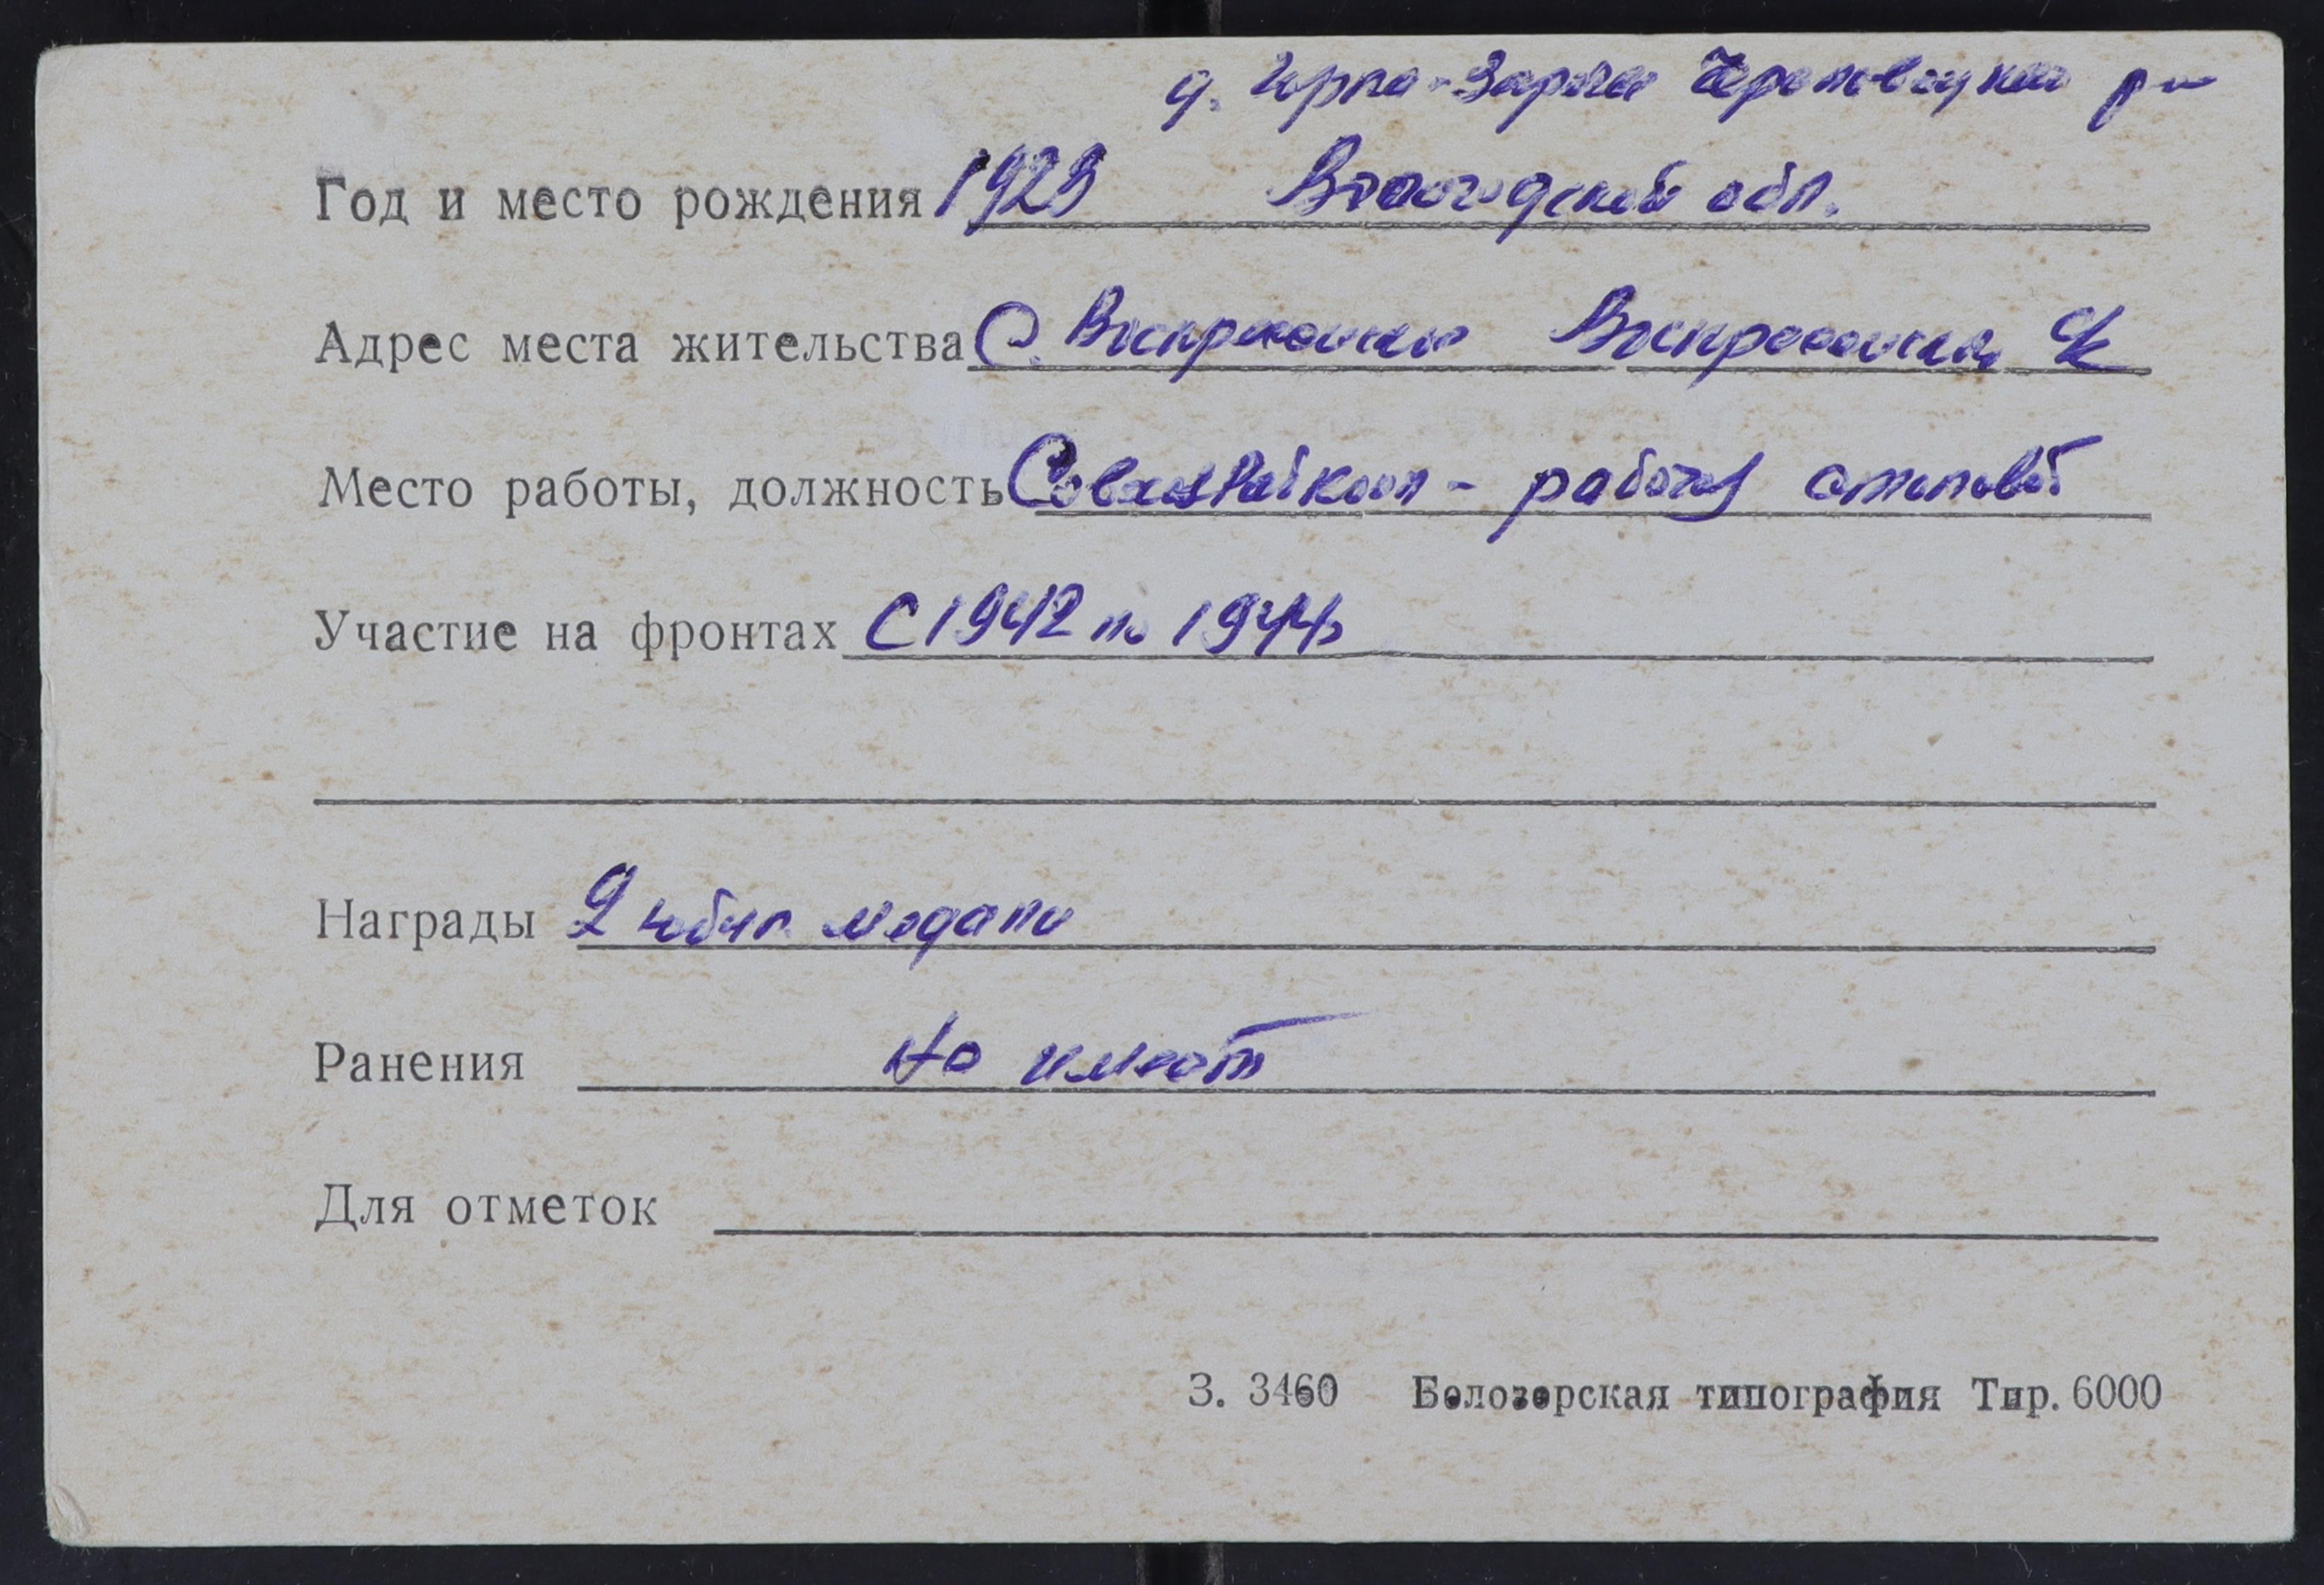 д. Горка-Заречье Череповецкого р-н
Год и место рождения 1923 Вологодской обл.
Адрес места жительства С. Воскресенское Воскресенский с/с
Место работы, должность Райкооп - рабочая столовой
Участие на фронтах С 1942 по 1944г
Награды 2 юбил. медали
Ранения Не имеет
Для отметок
З. 3460 Белозерская типография Тир. 6000